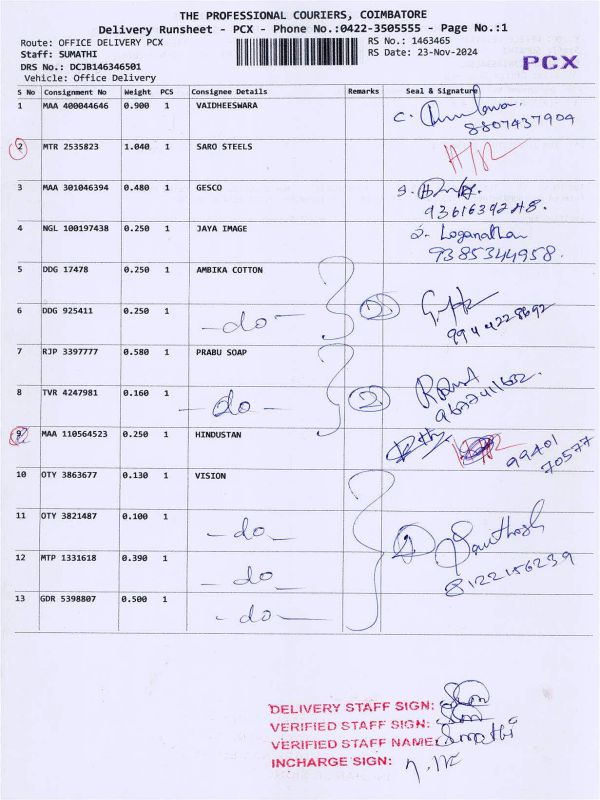 THE PROFESSIONAL COURIERS, COIMBATORE
Delivery Runsheet - PCX - Phone No.:0422-3505555 - Page No.:1
Route: OFFICE DELIVERY PCX
RS No.: 1463465
Staff: SUMATHI
RS Date: 23-Nov-2024
DRS No.: DCJB146346501
PCX
Vehicle: Office Delivery
S No Consignment No Weight PCS Consignee Details Remarks Seal & Signature
1 MAA 400044646 0.900 1 VAIDHEESWARA
8807437904
2 MTR 2535823 1.040 1 SARO STEELS
3 MAA 301046394 0.480 1 GESCO
9361639248.
4 NGL 100197438 0.250 1 JAYA IMAGE
Loganathan
9385344958.
5 DDG 17478 0.250 1 AMBIKA COTTON
6 DDG 925411 0.250 1 -do- 2
9944228692
7 RJP 3397777 0.580 1 PRABU SOAP
8 TVR 4247981 0.160 1 -do- 2
9 MAA 110564523 0.250 1 HINDUSTAN
99401
70577
10 OTY 3863677 0.130 1 VISION
11 OTY 3821487 0.100 1 -do- 4 Santhosh
12 MTP 1331618 0.390 1 -do 8122156239
13 GDR 5398807 0.500 1 -do-
DELIVERY STAFF SIGN:
VERIFIED STAFF SIGN:
VERIFIED STAFF NAME: Sumathi
INCHARGE SIGN: